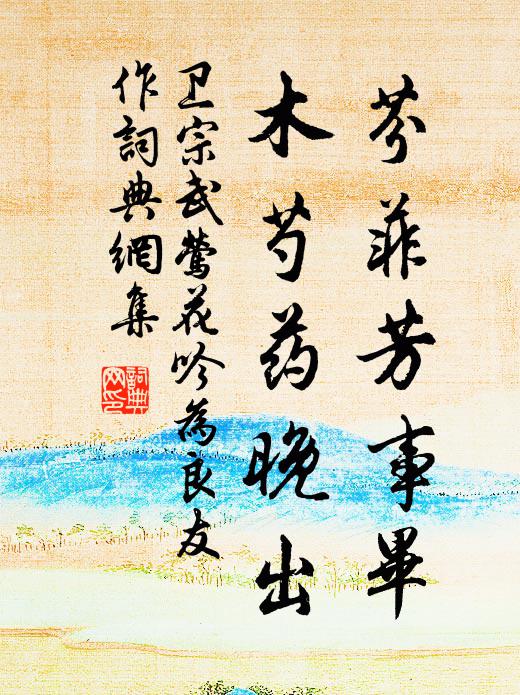 芬菲芳事畢
木芍药晚出
卫宗武莺花吟為良友
作詞典網集
詞典網印